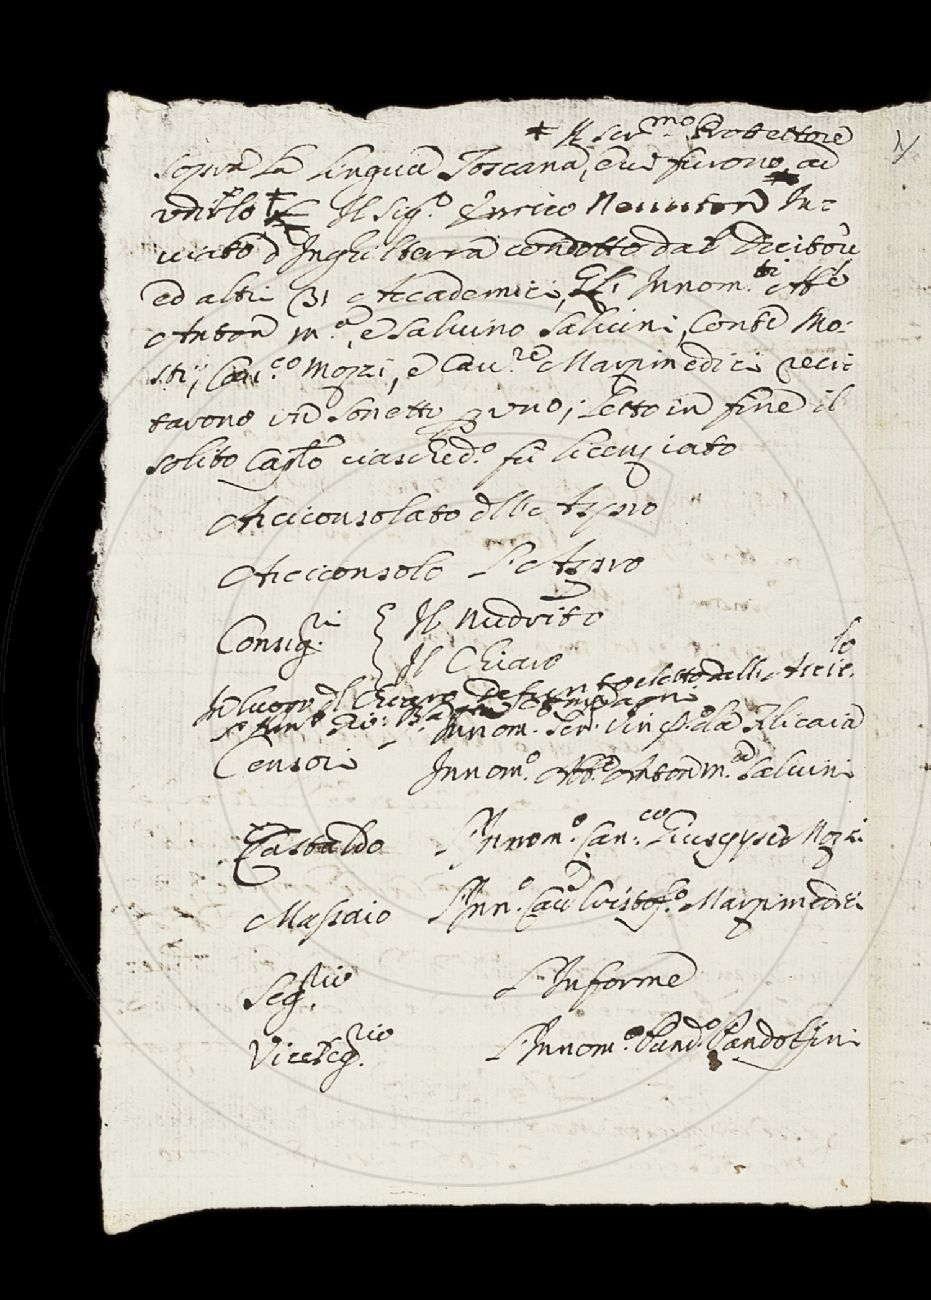 ‡ Il Ser.mo Protettore
sopra la lingua Toscana, e vi furono ad
udirlo ‡ Il Sig.o Enrico Neuuton In-
uiato d'Inghilterra condotto dal
ed altri 31 Accademici, Gl'Innom.ti Ab.e
Anton M.a, e Saluino Saluini, Conte Mo-
sti, Can.co Mozzi, e Cau.re Marzimedici reci-
tarono un Sonetto p uno, letto in fine il
solito Cap.lo ciasched.o fu licenziato
Arciconsolato dell'Aspro
Arciconsolo L'Aspro
Consig.ri { Il Nudrito
Il Chiaro
In luogo del Chiaro defunto eletto dall'Arcic.lo
Innom. Sen. Vin.o da Filicaia
Censori Innom.o Ab.e Anton M.a Saluini
Castaldo L'Innom.o Can.co Giuseppe Mozzi
Massaio L'Inn.o Cau. Cristof.o Marzimedici
Seg.rio L'Informe
Viceseg.rio L'Innom.o Pand.o Pandolfini